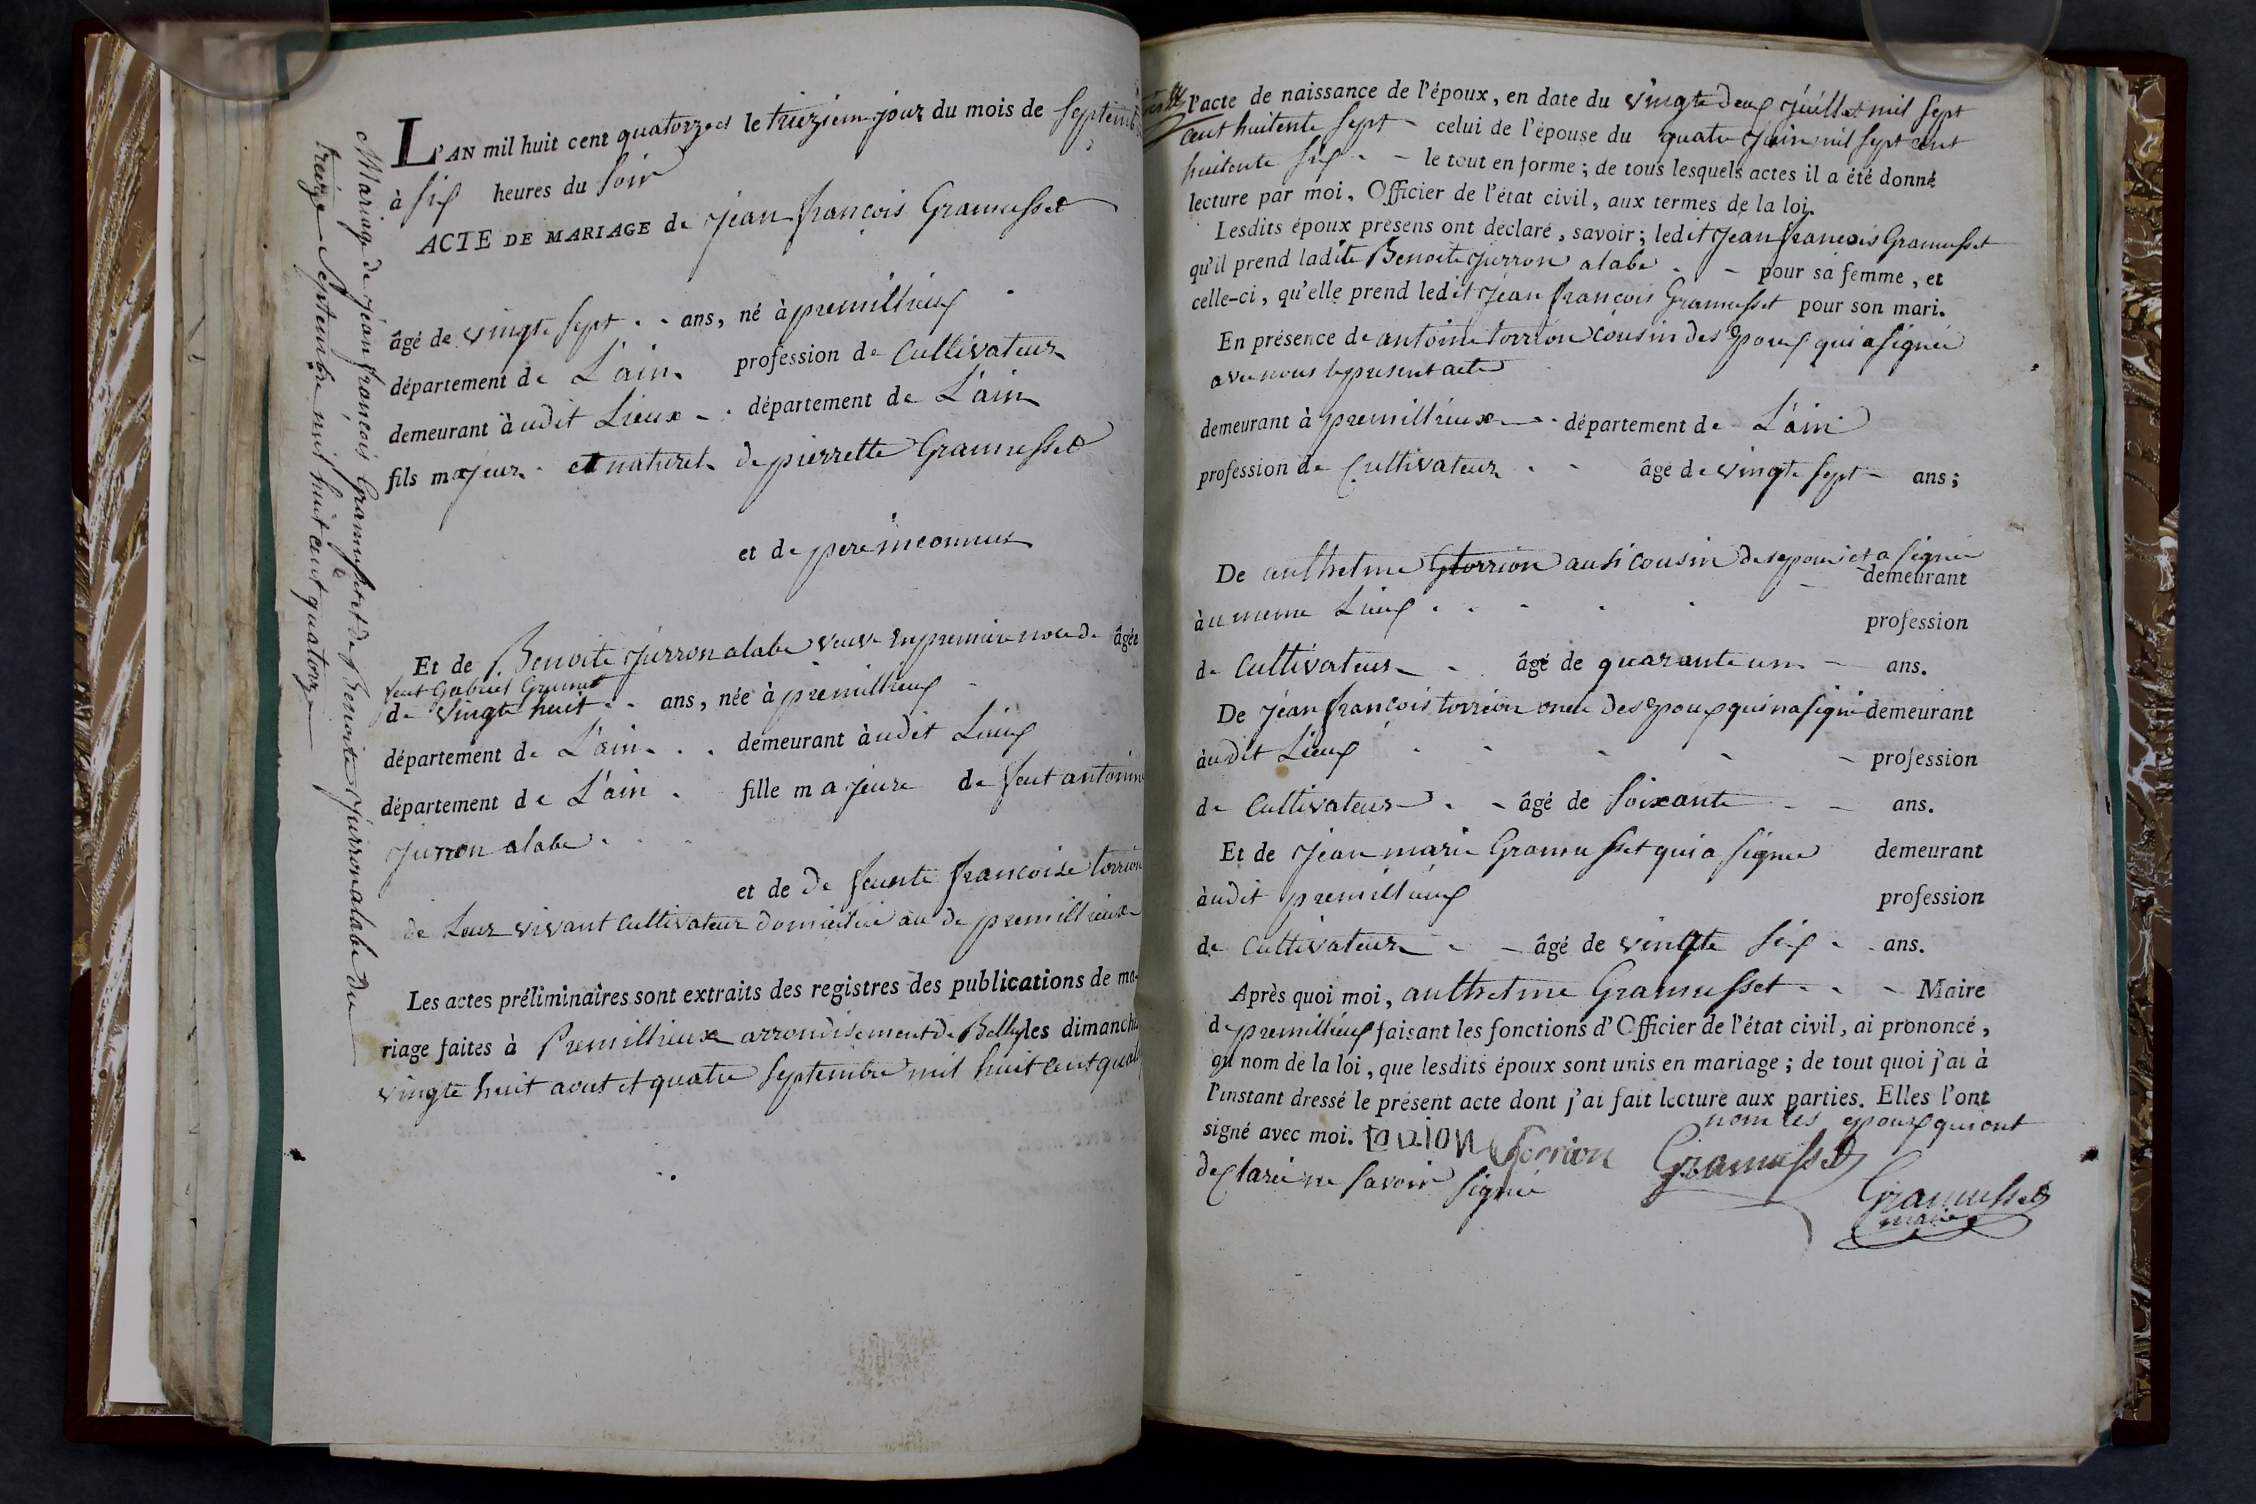 Mariage de jean françois Gramusset et de Benoite jurron alabe du
treize Septembre mil huit cent quatorze
L'AN mil huit cent quatorze et le treizieme jour du mois de Septembre
à six heures du Soir
ACTE DE MARIAGE de jean françois Gramusset
âgé de vingte sept ans, né à premillieux
département de L'ain profession de Cultivateur
demeurant àudit Lieux département de L'ain
fils majeur et naturel de pierrette Gramusset
et de pere inconnus
Et de Benoite jurron alabe veuve en premiere noce de âgée
feut Gabriel Gramus
de vingte huit ans, née à premillieux
département de L'ain demeurant àudit Lieux
département de L'ain fille majeure de feut antoine
jurron alabe
et de de feuente francoise torrion
de Leur vivant Cultivateur domicilié au de premillieux
Les actes préliminaires sont extraits des registres des publications de ma-
riage faites à Premillieux arrondisement de Belley les dimanche
vingte huit aout et quatre Septembre mil huit cent quato
l'acte de naissance de l'époux, en date du vingte deux juillet mil sept
cent huitente sept celui de l'épouse du quatre juin mil sept cent
huitente six le tout en forme; de tous lesquels actes il a été donné
lecture par moi, Officier de l'état civil, aux termes de la loi.
Lesdits époux présens ont déclaré, savoir; ledit jean françois Gramusset
qu'il prend ladite Benoite jurron alabe pour sa femme, et
celle-ci, qu'elle prend ledit jean françois Gramusset pour son mari.
En présence de antoine torrion cousin des epoux qui a signée
avec nous le present acte
demeurant à premillieux département de L'ain
profession de Cultivateur âgé de vingte sept ans;
De anthelme Gtorrion ausi cousin des epoux et a signée
demeurant
àu meme Lieux
profession
de Cultivateur âgé de quarante un ans.
De jean françois torrion oncle des epoux qui na signé demeurant
àudit Lieux profession
de Cultivateur âgé de soixante ans.
Et de jean marie Gramusset qui a signée demeurant
àudit premillieux profession
de Cultivateur âgé de vingte six ans.
Après quoi moi, anthelme Gramusset Maire
de premillieux faisant les fonctions d'Officier de l'état civil, ai prononcé,
au nom de la loi, que lesdits époux sont unis en mariage; de tout quoi j'ai à
l'instant dressé le présent acte dont j'ai fait lecture aux parties. Elles l'ont
non les epoux qui ont
signé avec moi. torrion Gtorrion Gramusset
declarée ne savoir signée
Gramusset
maire